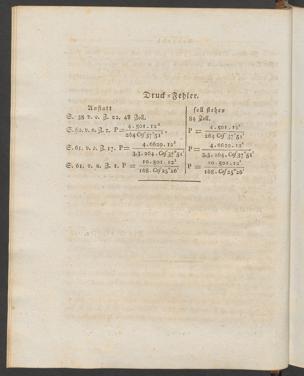 Druck-Fehler.
Anstatt soll stehen
S. 58 v. o. Z. 22. 48 Zoll. 84 Zoll.
S. 60. v. o. Z. 2. P = 4.501.12² / 264 Cof 37°51' P = 4.501.12³ / 264 Cof 37°51'
S. 61. v. o. Z. 17. P = 4.6620.12² / 3.3.264.Cof 37°51' P = 4.6620.12³ / 3.3.264.Cof 37°51'
S. 61. v. u. Z. 1. P = 10.501.12² / 168.Cof 25°26' P = 10.501.12³ / 168.Cof 25°26'